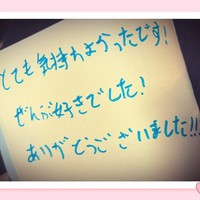 とても気持ちよかったです!
ぜんぶ好きでした!
ありがとうございました!!